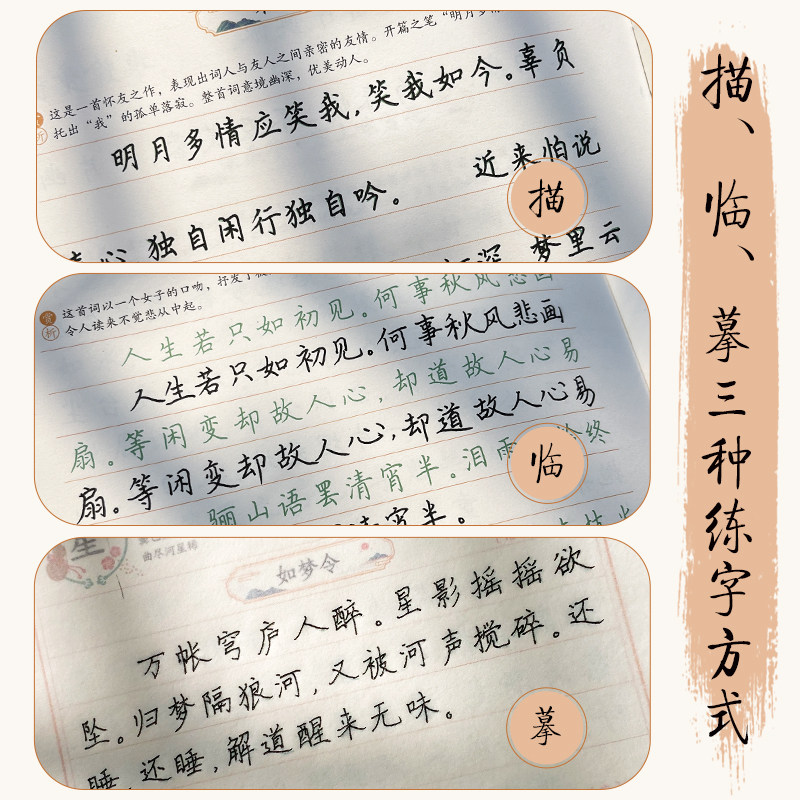 这是一首怀友之作，表现出词人与友人之间亲密的友情。开篇之笔“明月多情
托出“我”的孤单落寂。整首词意境幽深，优美动人。
明月多情应笑我，笑我如今。辜负
近来怕说
心 独自闲行独自吟。
深 梦里云
描
赏析
这首词以一个女子的口吻，抒发了
令人读来不觉悲从中起。
人生若只如初见。何事秋风悲画
人生若只如初见。何事秋风悲画
扇。等闲变却故人心，却道故人心易
扇。等闲变却故人心，却道故人心易
骊山语罢清宵半。泪雨 终
宵半。
临
如梦令
万帐穹庐人醉。星影摇摇欲
坠。归梦隔狼河，又被河声搅碎。还
睡，还睡，解道醒来无味。
摹
描、临、摹三种练字方式